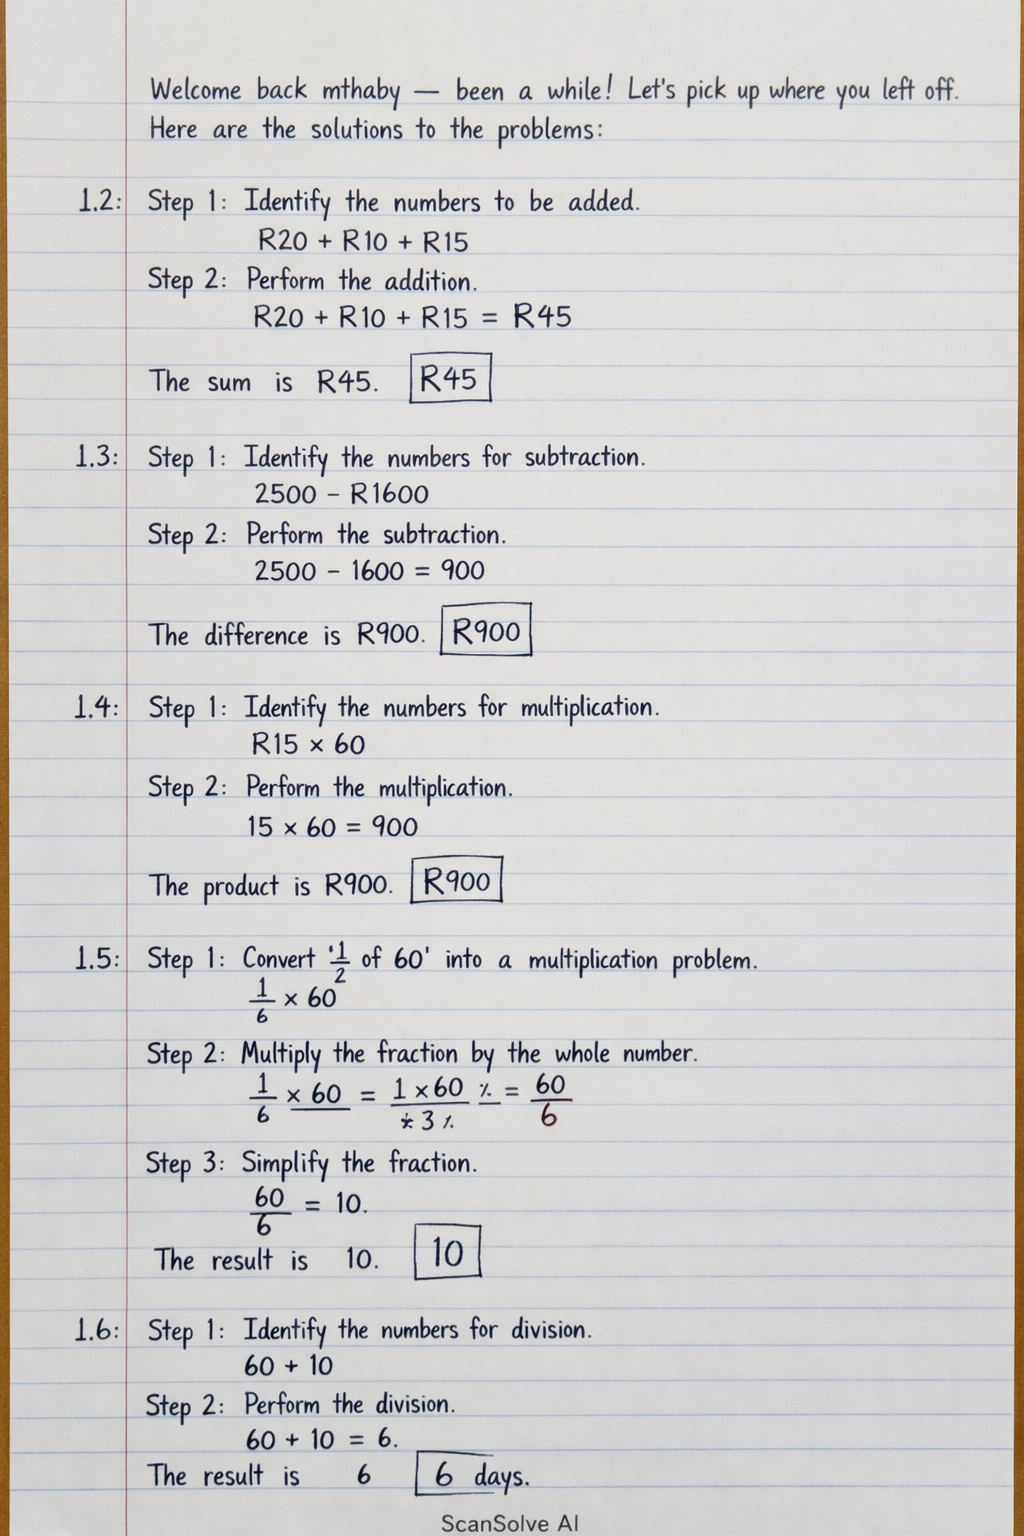 Welcome back mthaby — been a while! Let's pick up where you left off.
Here are the solutions to the problems:
1.2: Step 1: Identify the numbers to be added.
R20 + R10 + R15
Step 2: Perform the addition.
R20 + R10 + R15 = R45
The sum is R45. R45
1.3: Step 1: Identify the numbers for subtraction.
2500 - R1600
Step 2: Perform the subtraction.
2500 - 1600 = 900
The difference is R900. R900
1.4: Step 1: Identify the numbers for multiplication.
R15 × 60
Step 2: Perform the multiplication.
15 × 60 = 900
The product is R900. R900
1.5: Step 1: Convert '1/2 of 60' into a multiplication problem.
1/6 × 60
Step 2: Multiply the fraction by the whole number.
1/6 × 60 = 1 × 60 = 60/6
Step 3: Simplify the fraction.
60/6 = 10.
The result is 10. 10
1.6: Step 1: Identify the numbers for division.
60 + 10
Step 2: Perform the division.
60 + 10 = 6.
The result is 6 6 days.
ScanSolve AI